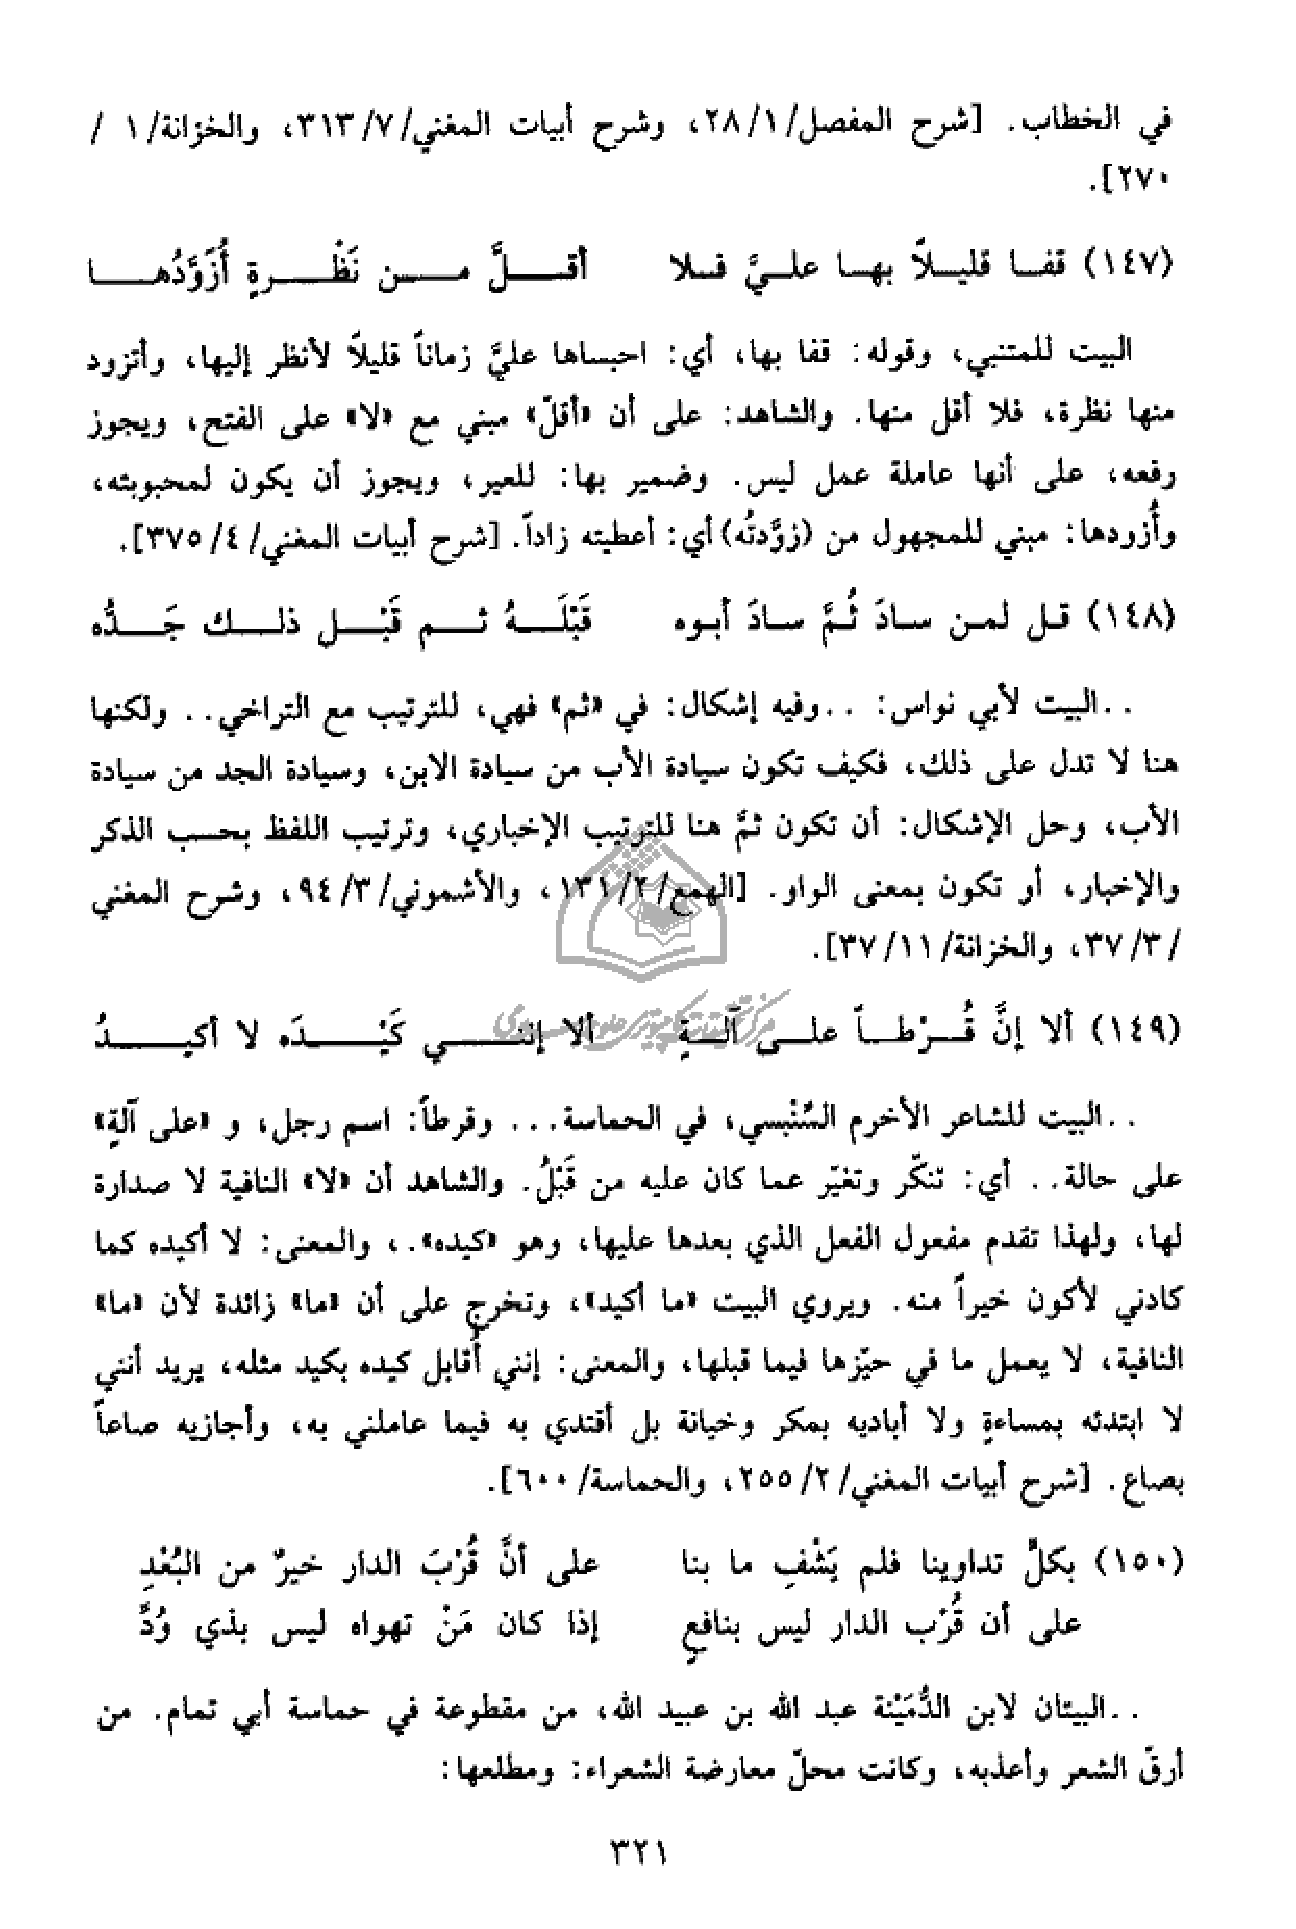 في الخطاب. [شرح المفصل/ ١/ ٢٨، وشرح أبيات المغني/ ٧/ ٣١٣، والخزانة/ ١ /
٢٧٠].
(١٤٧) قفـا قليـلاً بهـا علـيَّ فـلا أقـلَّ مـن نَظْـرةٍ أُزَوَّدُهـا
البيت للمتنبي، وقوله: قفا بها، أي: احبساها عليَّ زماناً قليلاً لأنظر إليها، وأتزود
منها نظرة، فلا أقل منها. والشاهد: على أن «أقلّ» مبني مع «لا» على الفتح، ويجوز
رفعه، على أنها عاملة عمل ليس. وضمير بها: للعير، ويجوز أن يكون لمحبوبته،
وأُزودها: مبني للمجهول من (زوَّدتُه) أي: أعطيته زاداً. [شرح أبيات المغني/ ٤/ ٣٧٥].
(١٤٨) قـل لمـن سـادَ ثُـمَّ سـادَ أبـوه قَبْلَـهُ ثـم قَبْـل ذلـك جَـدُّه
..البيت لأبي نواس: ..وفيه إشكال: في «ثم» فهي، للترتيب مع التراخي.. ولكنها
هنا لا تدل على ذلك، فكيف تكون سيادة الأب من سيادة الابن، وسيادة الجد من سيادة
الأب، وحل الإشكال: أن تكون ثمَّ هنا للترتيب الإخباري، وترتيب اللفظ بحسب الذكر
والإخبار، أو تكون بمعنى الواو. [الهمع/ ٢/ ١٣١، والأشموني/ ٣/ ٩٤، وشرح المغني
/ ٣/ ٣٧، والخزانة/ ١١/ ٣٧].
(١٤٩) ألا إنَّ قُـرْطـاً علـى آلـةٍ ألا إننـي كَيْـدَه لا أكيـدُ
..البيت للشاعر الأخرم السِّنْبسي، في الحماسة... وقرطاً: اسم رجل، و «على آلةٍ»
على حالة.. أي: تنكّر وتغيّر عما كان عليه من قَبْلُ. والشاهد أن «لا» النافية لا صدارة
لها، ولهذا تقدم مفعول الفعل الذي بعدها عليها، وهو «كيده».، والمعنى: لا أكيده كما
كادني لأكون خيراً منه. ويروي البيت «ما أكيد»، وتخرج على أن «ما» زائدة لأن «ما»
النافية، لا يعمل ما في حيّزها فيما قبلها، والمعنى: إنني أُقابل كيده بكيد مثله، يريد أنني
لا ابتدئه بمساءةٍ ولا أباديه بمكر وخيانة بل أقتدي به فيما عاملني به، وأجازيه صاعاً
بصاع. [شرح أبيات المغني/ ٢/ ٢٥٥، والحماسة/ ٦٠٠].
(١٥٠) بكلٍّ تداوينا فلم يَشْفِ ما بنا على أنَّ قُرْبَ الدار خيرٌ من البُعْدِ
على أن قُرْب الدار ليس بنافعٍ إذا كان مَنْ تهواه ليس بذي وُدِّ
..البيتان لابن الدُّمَيْنة عبد الله بن عبيد الله، من مقطوعة في حماسة أبي تمام. من
أرقّ الشعر وأعذبه، وكانت محلّ معارضة الشعراء: ومطلعها:
٣٢١